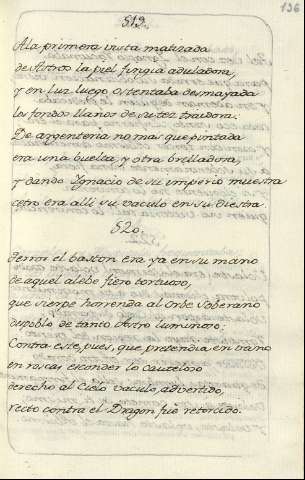 136
519.
A la primera vista matizada
de Astros la piel fingia aduladora,
y en luz luego ostentaba desmayada
los fondos llanos de su tez traidora:
De argenteria no mas que pintada
era una buelta, y otra brilladora,
y dando Ignacio de su imperio muestra
cetro era allí su vaculo en su diestra.
520.
terror el baston era ya en su mano
de aquel alebe fiero tortuoso,
que sierpe horrenda al Orbe Soberano
despobló de tanto Astro luminoso:
Contra este, pues, que pretendia en vano
en roscas esconder lo cauteloso
derecho al Cielo vaculo advertido,
recto contra el Dragon fue retorcido.